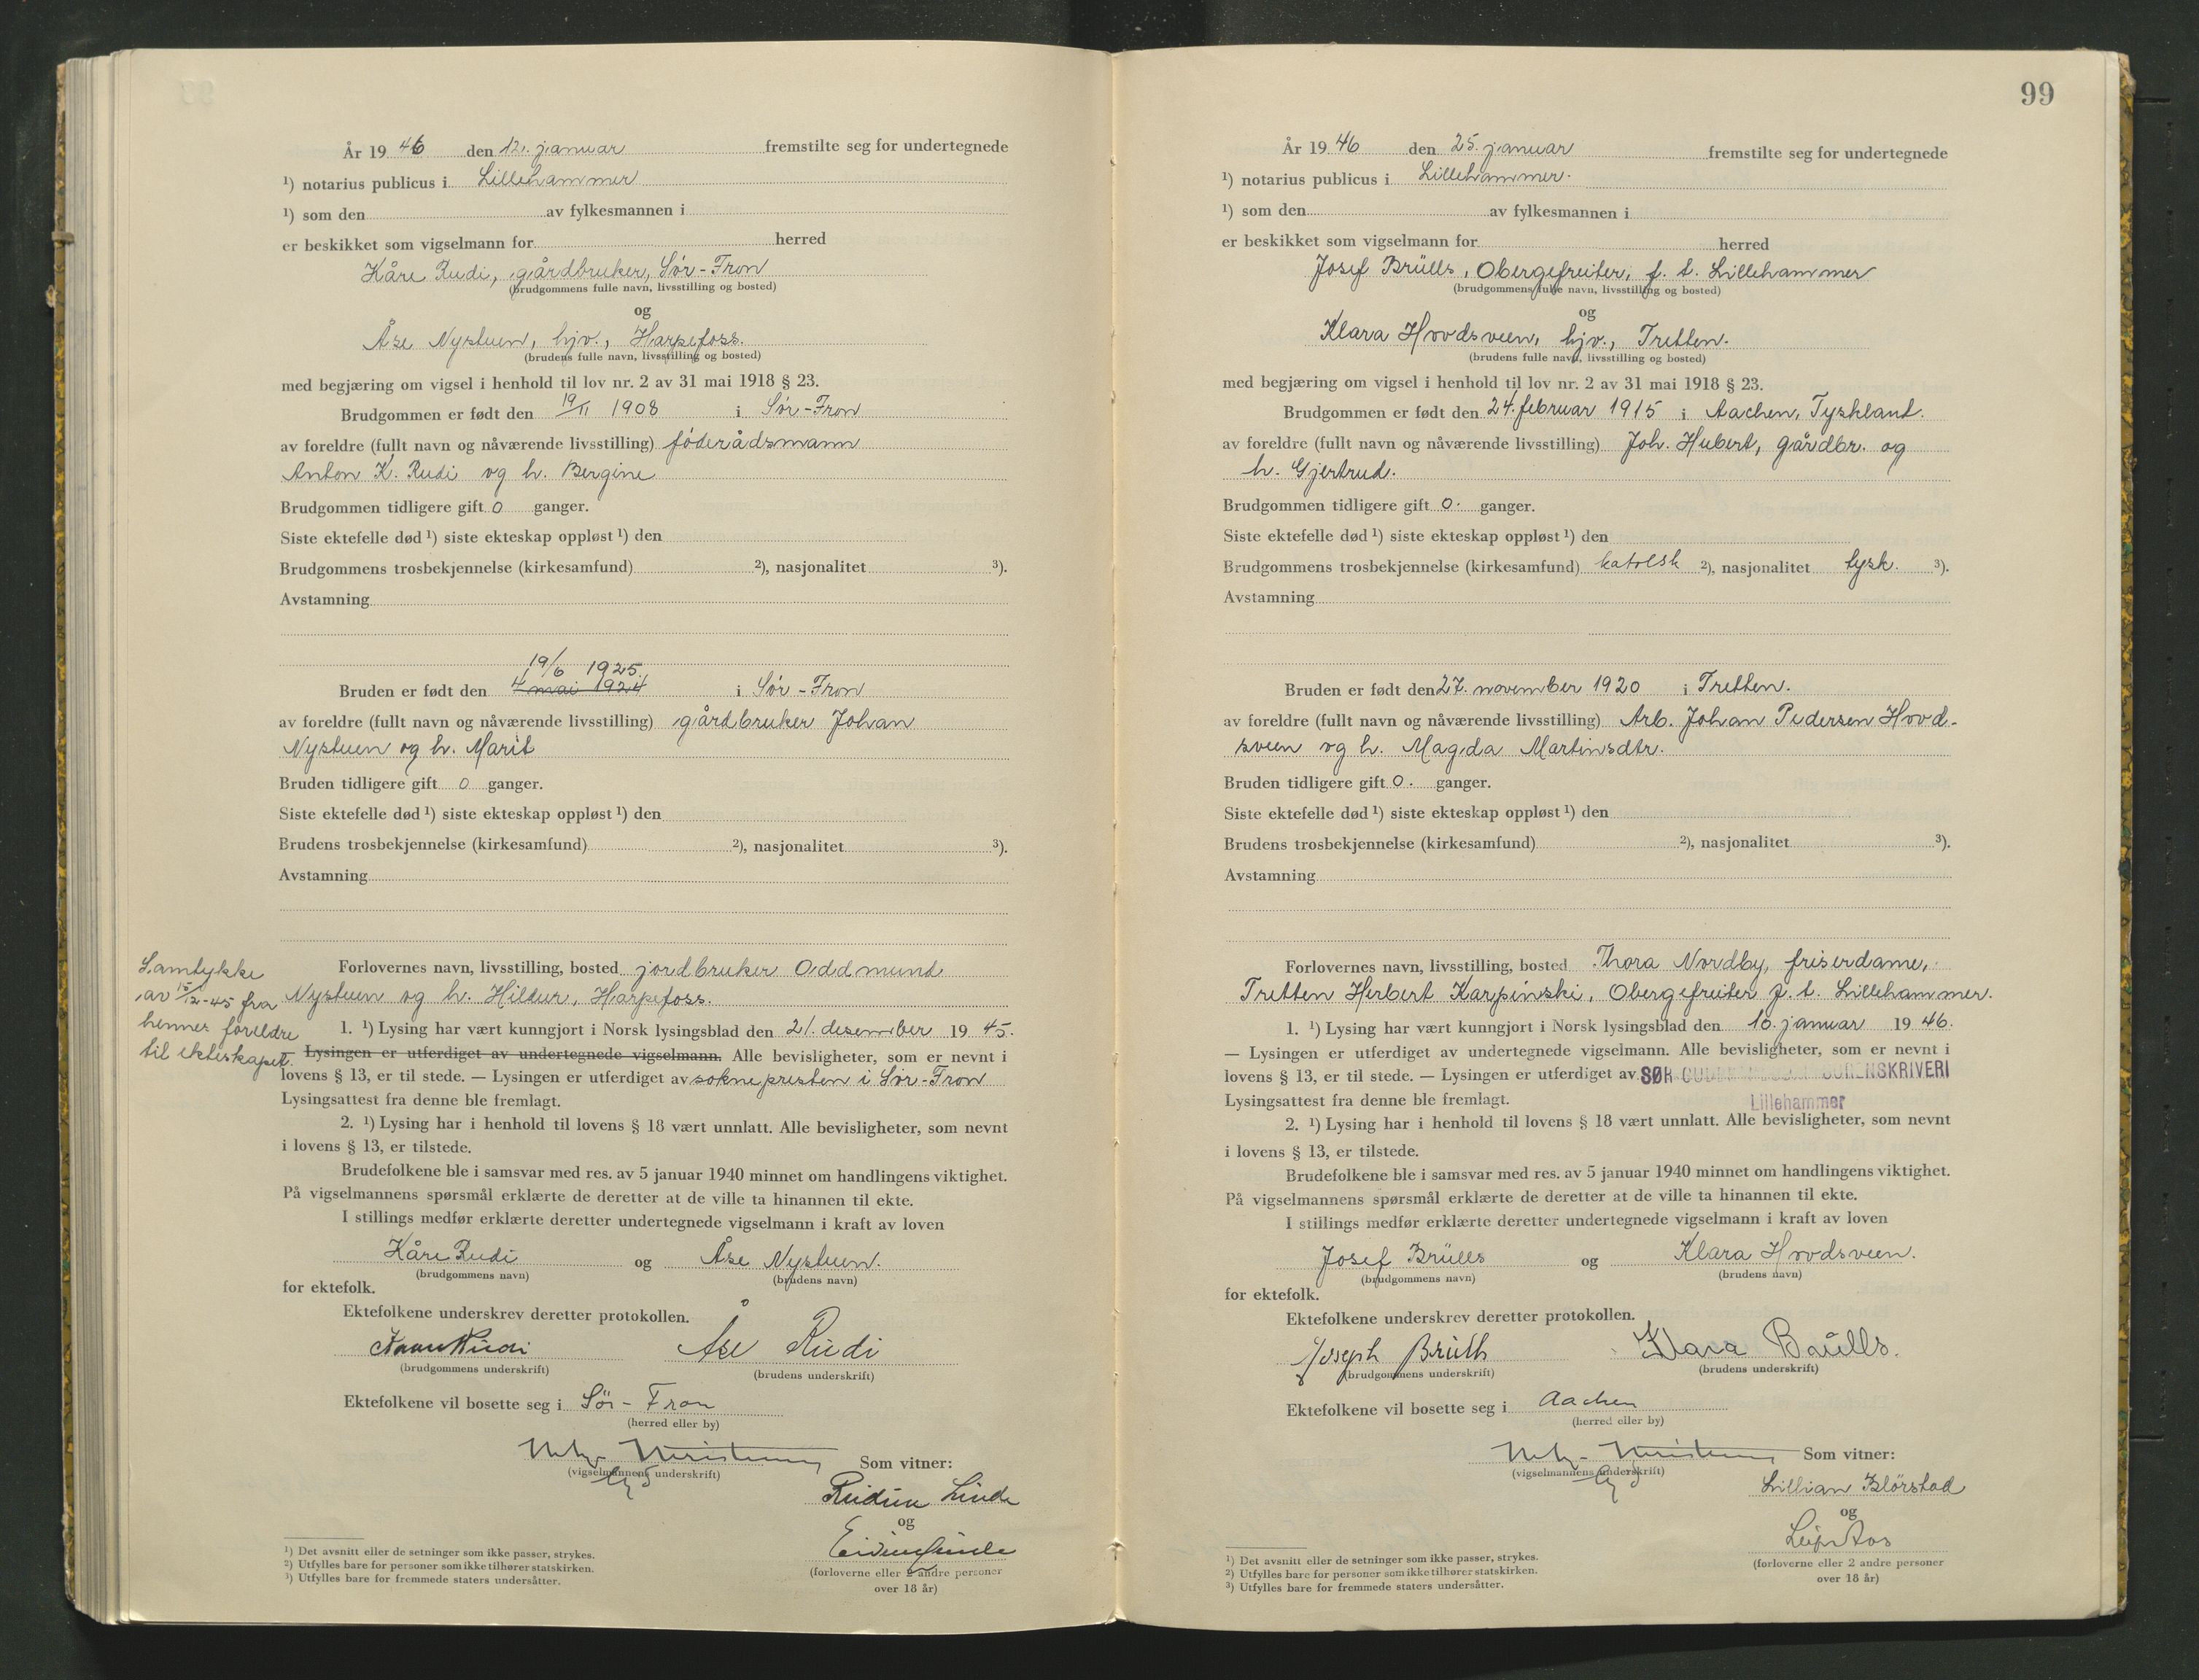 År 19 46 den 12. januar fremstilte seg for undertegnede
¹) notarius publicus i Lillehammer
¹) som den av fylkesmannen i
er beskikket som vigselmann for herred
Kåre Rudi, gårdbruker, Sør-Fron
(brudgommens fulle navn, livsstilling og bosted)
og
Åse Nystuen, hjv., Harpefoss.
(brudens fulle navn, livsstilling og bosted)
med begjæring om vigsel i henhold til lov nr. 2 av 31 mai 1918 § 23.
Brudgommen er født den 19/11 1908 i Sør-Fron
av foreldre (fullt navn og nåværende livsstilling) føderådsmann
Anton K. Rudi og h. Bergine
Brudgommen tidligere gift 0 ganger.
Siste ektefelle død ¹) siste ekteskap oppløst ¹) den
Brudgommens trosbekjennelse (kirkesamfund) ²), nasjonalitet ³).
Avstamning
19/6 1925.
Bruden er født den 4 mai 1924 i Sør-Fron
av foreldre (fullt navn og nåværende livsstilling) gårdbruker Johan
Nystuen og h. Marit
Bruden tidligere gift 0 ganger.
Siste ektefelle død ¹) siste ekteskap oppløst ¹) den
Brudens trosbekjennelse (kirkesamfund) ²), nasjonalitet ³).
Avstamning
Samtykke
av 15/12-45 fra
hennes foreldre
til ekteskapet.
Forlovernes navn, livsstilling, bosted jordbruker Oddmund
Nystuen og h. Hildur, Harpefoss.
1. ¹) Lysing har vært kunngjort i Norsk lysingsblad den 21. desember 19 45.
— Lysingen er utferdiget av undertegnede vigselmann. Alle bevisligheter, som er nevnt i
lovens § 13, er til stede. — Lysingen er utferdiget av soknepresten i Sør-Fron
Lysingsattest fra denne ble fremlagt.
2. ¹) Lysing har i henhold til lovens § 18 vært unnlatt. Alle bevisligheter, som nevnt
i lovens § 13, er tilstede.
Brudefolkene ble i samsvar med res. av 5 januar 1940 minnet om handlingens viktighet.
På vigselmannens spørsmål erklærte de deretter at de ville ta hinannen til ekte.
I stillings medfør erklærte deretter undertegnede vigselmann i kraft av loven
Kåre Rudi og Åse Nystuen.
(brudgommens navn) (brudens navn)
for ektefolk.
Ektefolkene underskrev deretter protokollen.
Kaare Rudi Åse Rudi
(brudgommens underskrift) (brudens underskrift)
Ektefolkene vil bosette seg i Sør-Fron
(herred eller by)
(vigselmannens underskrift) Som vitner:
Reidun Linde
og
(forloverne eller 2 andre personer
over 18 år)
¹) Det avsnitt eller de setninger som ikke passer, strykes.
²) Utfylles bare for personer som ikke tilhører statskirken.
³) Utfylles bare for fremmede staters undersåtter.
99
År 19 46 den 25. januar fremstilte seg for undertegnede
¹) notarius publicus i Lillehammer.
¹) som den av fylkesmannen i
er beskikket som vigselmann for herred
Josef Brülls, Obergefreiter, f. t. Lillehammer
(brudgommens fulle navn, livsstilling og bosted)
og
Klara Hovdsveen, hjv., Tretten.
(brudens fulle navn, livsstilling og bosted)
med begjæring om vigsel i henhold til lov nr. 2 av 31 mai 1918 § 23.
Brudgommen er født den 24. februar 1915 i Aachen, Tyskland.
av foreldre (fullt navn og nåværende livsstilling) Joh. Hubert, gårdbr. og
h. Gjertrud.
Brudgommen tidligere gift 0. ganger.
Siste ektefelle død ¹) siste ekteskap oppløst ¹) den
Brudgommens trosbekjennelse (kirkesamfund) katolsk ²), nasjonalitet tysk. ³).
Avstamning
Bruden er født den 27. november 1920 i Tretten.
av foreldre (fullt navn og nåværende livsstilling) Arb. Johan Pedersen Hovd-
sveen og h. Magda Martinsdtr.
Bruden tidligere gift 0. ganger.
Siste ektefelle død ¹) siste ekteskap oppløst ¹) den
Brudens trosbekjennelse (kirkesamfund) ²), nasjonalitet ³).
Avstamning
Forlovernes navn, livsstilling, bosted Thora Nordby, friserdame,
Tretten Herbert Karpinski, Obergefreiter f. t. Lillehammer.
1. ¹) Lysing har vært kunngjort i Norsk lysingsblad den 10. januar 19 46.
— Lysingen er utferdiget av undertegnede vigselmann. Alle bevisligheter, som er nevnt i
lovens § 13, er til stede. — Lysingen er utferdiget av SØR-GUDBRANDSDAL SORENSKRIVERI
Lysingsattest fra denne ble fremlagt. Lillehammer
2. ¹) Lysing har i henhold til lovens § 18 vært unnlatt. Alle bevisligheter, som nevnt
i lovens § 13, er tilstede.
Brudefolkene ble i samsvar med res. av 5 januar 1940 minnet om handlingens viktighet.
På vigselmannens spørsmål erklærte de deretter at de ville ta hinannen til ekte.
I stillings medfør erklærte deretter undertegnede vigselmann i kraft av loven
Josef Brülls og Klara Hovdsveen.
(brudgommens navn) (brudens navn)
for ektefolk.
Ektefolkene underskrev deretter protokollen.
Joseph Brülls Klara Brülls.
(brudgommens underskrift) (brudens underskrift)
Ektefolkene vil bosette seg i Aachen
(herred eller by)
(vigselmannens underskrift) Som vitner:
Lillian Klørstad
og
Leif Aos
(forloverne eller 2 andre personer
over 18 år)
¹) Det avsnitt eller de setninger som ikke passer, strykes.
²) Utfylles bare for personer som ikke tilhører statskirken.
³) Utfylles bare for fremmede staters undersåtter.